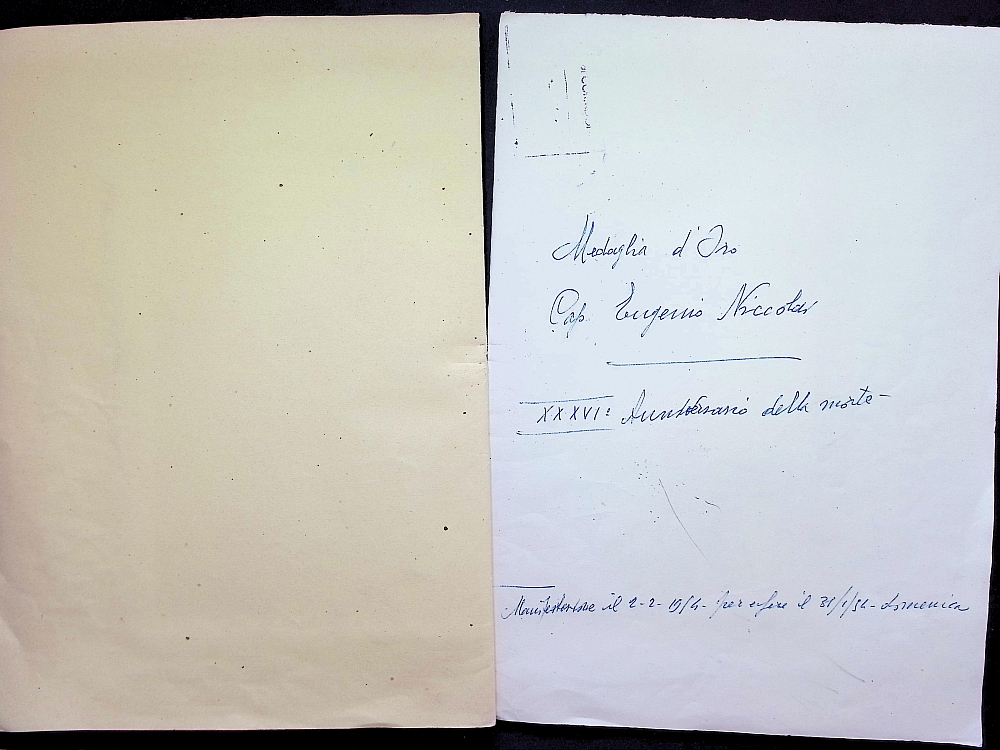 Medaglia d'Oro
Cap. Eugenio Niccolai
XXXVI° Anniversario della morte -
Manifestazione il 2-2-1954 - per essere il 31/1/54 - domenica